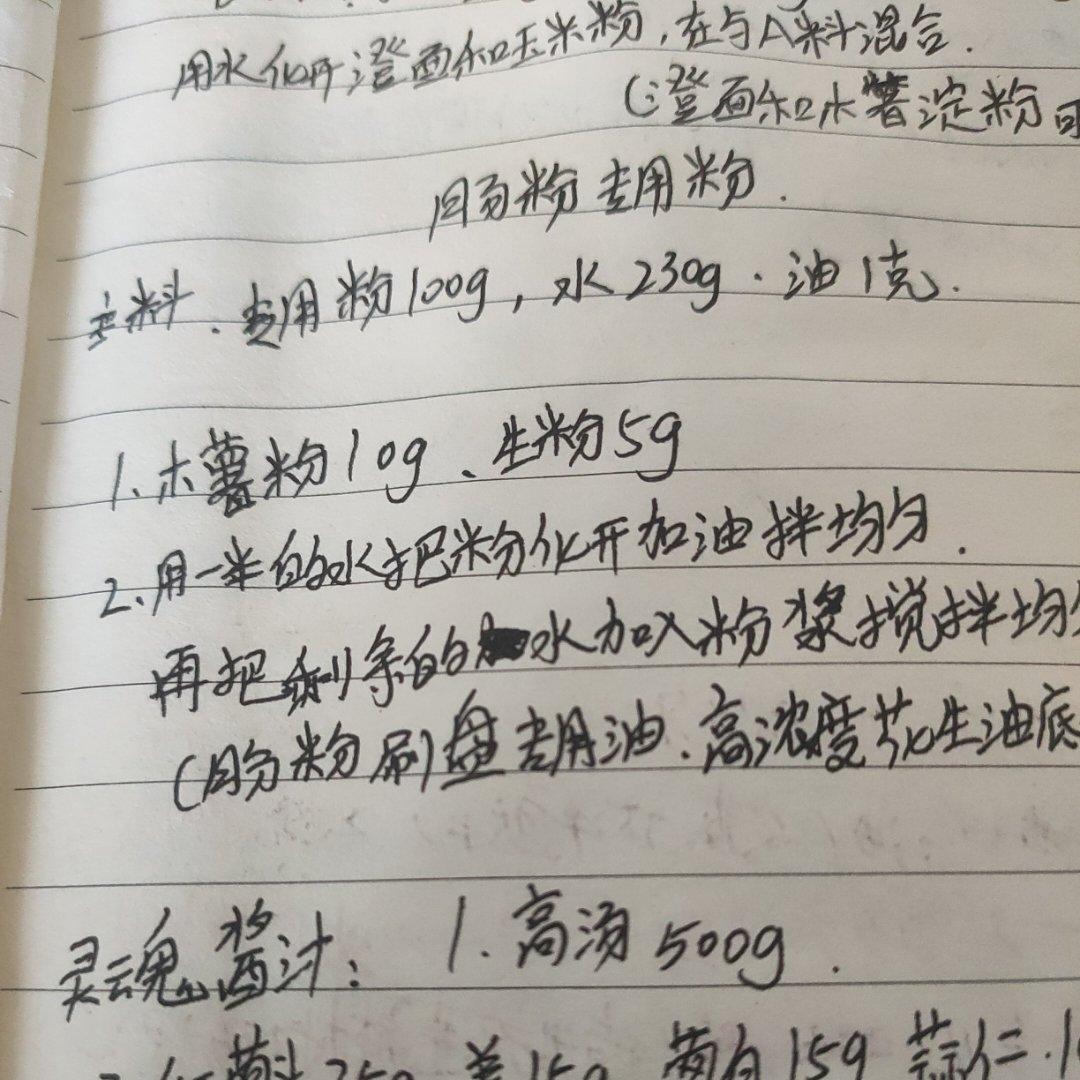 用水化开澄面和玉米粉,在与A料混合.
(澄面和木薯淀粉可
肠粉专用粉.
主料.专用粉100g,水230g.油1克.
1.木薯粉10g、生粉5g
2.用一半的水把粉化开加油拌均匀.
再把剩余的水加入粉浆搅拌均匀
(肠粉刷盘专用油.高浓度花生油底
灵魂酱汁: 1.高汤500g.
姜15g 葱白15g 蒜仁.1